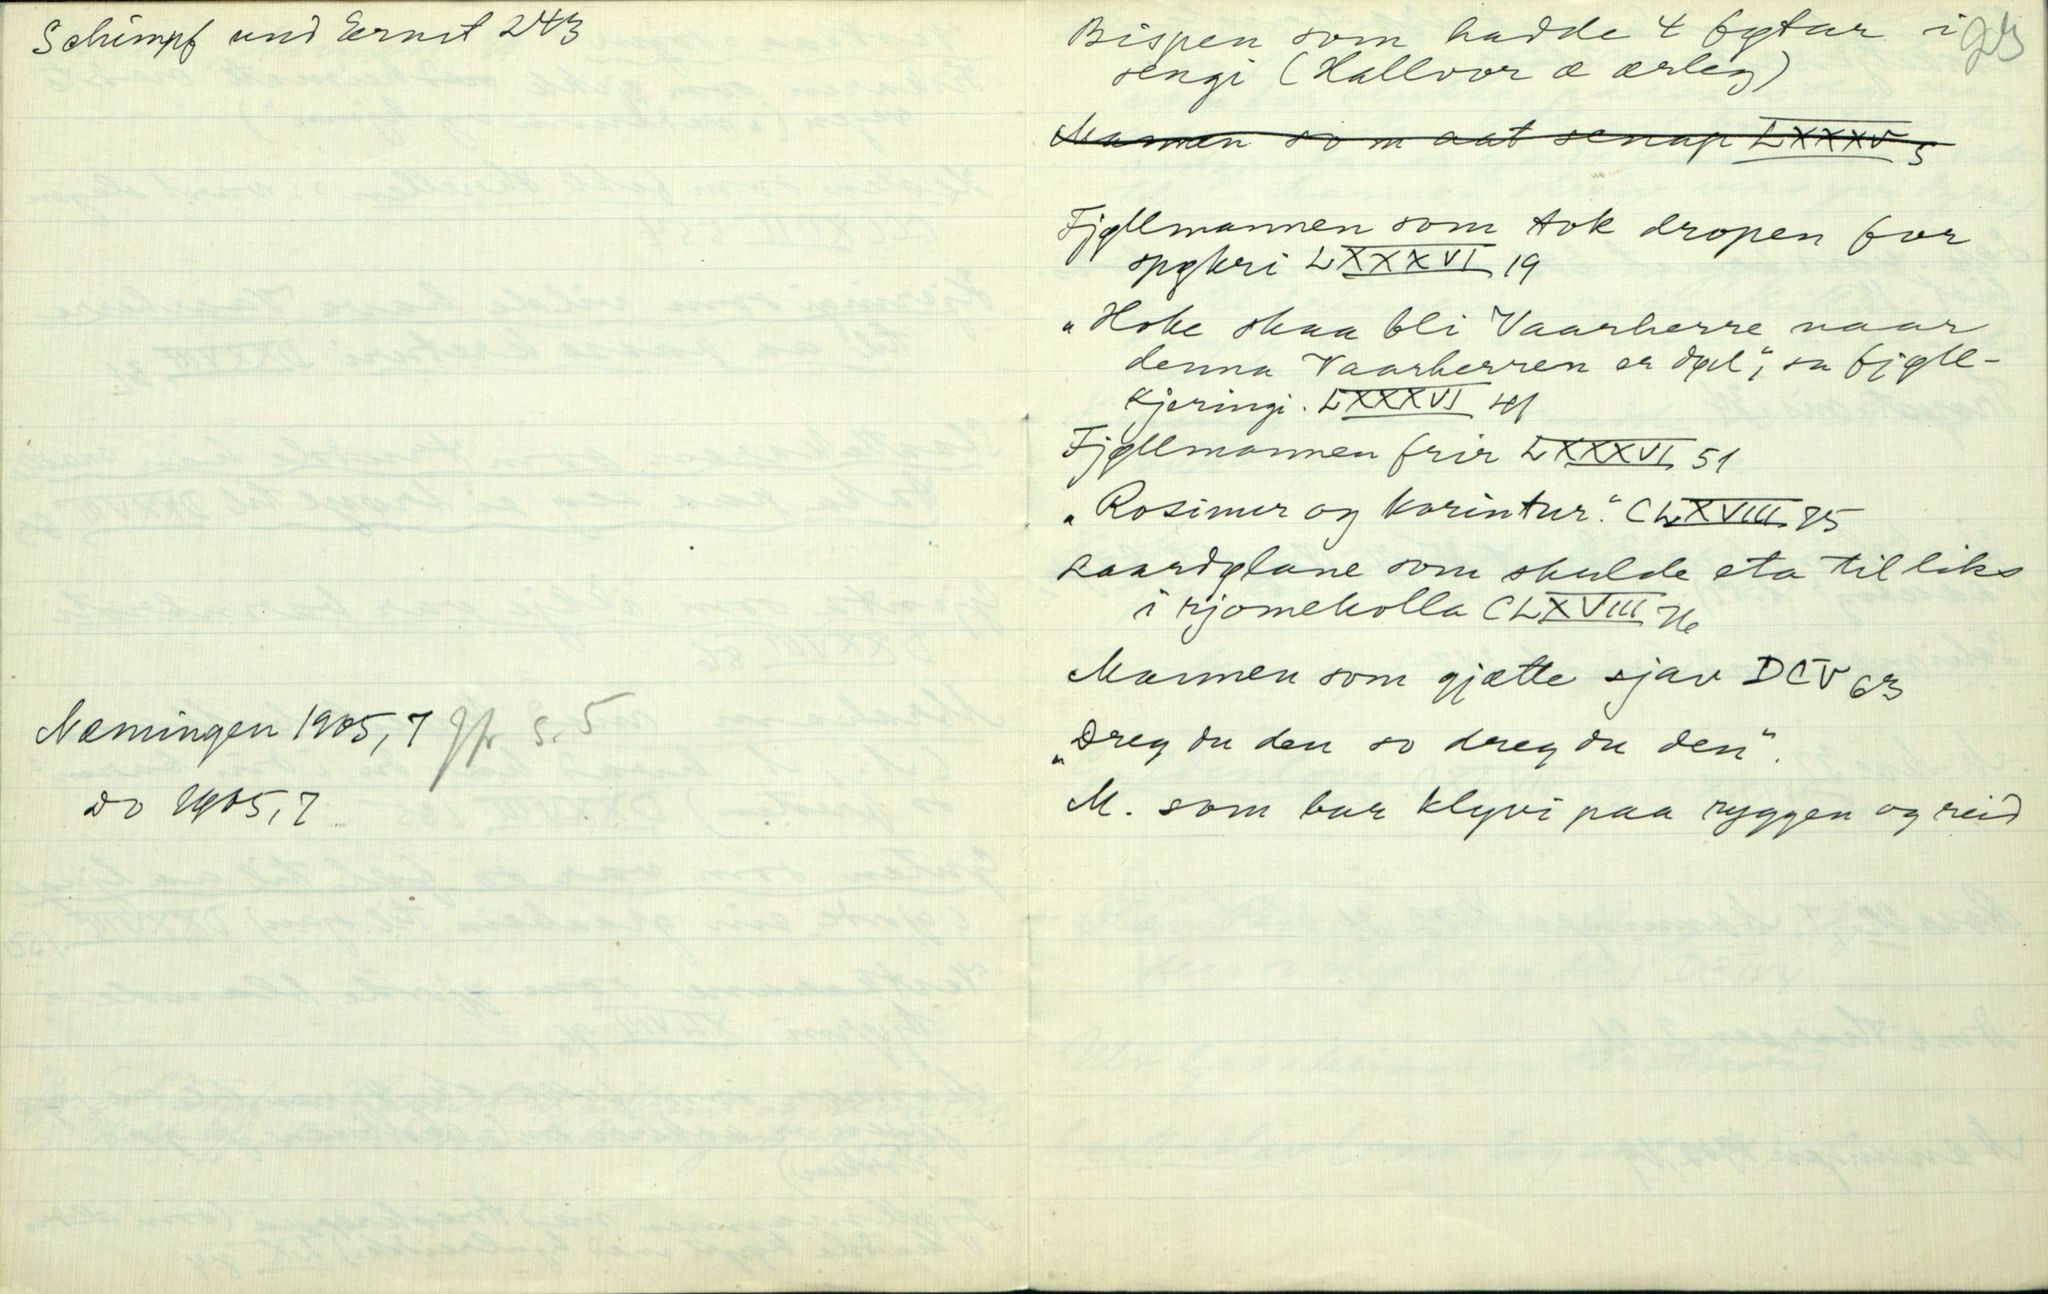 Schimpf und Ernst 243
Næmingen 1905,7 jfr s. 5
Do 1905,7
Bispen som hadde 4 føtar i
sengi (Hallvor æ ærleg)
Mannen som aat senap LXXXV 5
Fjøllmannen som tok dropen for
spøkri LXXXVI 19
"Hoke skaa bli Vaarherre naar
denna Vaarherren er død", sa fjøll-
kjeringi. LXXXVI 41
Fjøllmannen frir LXXXVI 51
"Rosiner og korintur." CLXVIII 75
Laardølane som skulde eta til liks
i rjomekolla CLXVIII 76
Mannen som gjætte sjav DCV 63
"Dreg du den so dreg du den".
M. som bar klyvi paa ryggen og reid